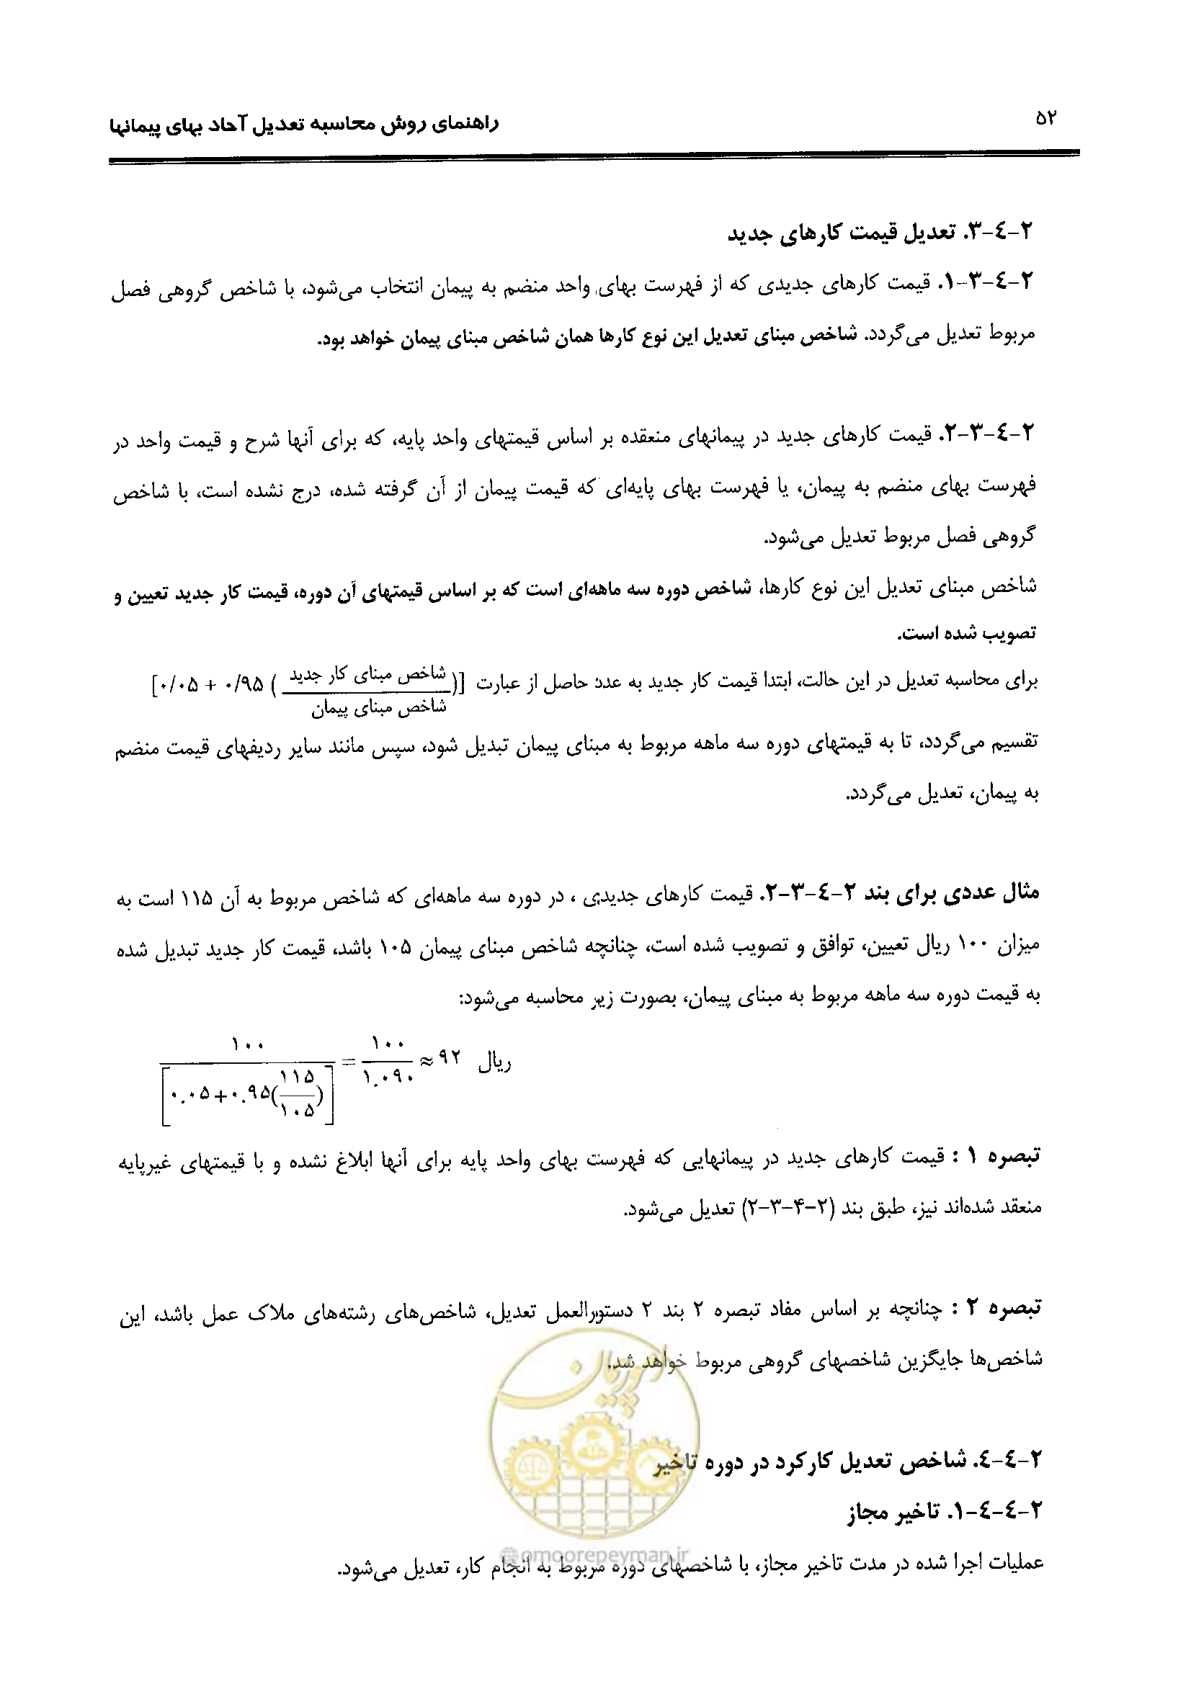 ۵۲
راهنمای روش محاسبه تعدیل آحاد بهای پیمانها
۲-٤-۳. تعدیل قیمت کارهای جدید
۲-٤-۳-۱. قیمت کارهای جدیدی که از فهرست بهای واحد منضم به پیمان انتخاب می‌شود، با شاخص گروهی فصل
مربوط تعدیل می‌گردد. شاخص مبنای تعدیل این نوع کارها همان شاخص مبنای پیمان خواهد بود.
۲-٤-۳-۲. قیمت کارهای جدید در پیمانهای منعقده بر اساس قیمتهای واحد پایه، که برای آنها شرح و قیمت واحد در
فهرست بهای منضم به پیمان، یا فهرست بهای پایه‌ای که قیمت پیمان از آن گرفته شده، درج نشده است، با شاخص
گروهی فصل مربوط تعدیل می‌شود.
شاخص مبنای تعدیل این نوع کارها، شاخص دوره سه ماهه‌ای است که بر اساس قیمتهای آن دوره، قیمت کار جدید تعیین و
تصویب شده است.
برای محاسبه تعدیل در این حالت، ابتدا قیمت کار جدید به عدد حاصل از عبارت [(شاخص مبنای کار جدید / شاخص مبنای پیمان) ۰/۹۵ + ۰/۰۵]
تقسیم می‌گردد، تا به قیمتهای دوره سه ماهه مربوط به مبنای پیمان تبدیل شود، سپس مانند سایر ردیفهای قیمت منضم
به پیمان، تعدیل می‌گردد.
مثال عددی برای بند ۲-٤-۳-۲. قیمت کارهای جدیدی ، در دوره سه ماهه‌ای که شاخص مربوط به آن ۱۱۵ است به
میزان ۱۰۰ ریال تعیین، توافق و تصویب شده است، چنانچه شاخص مبنای پیمان ۱۰۵ باشد، قیمت کار جدید تبدیل شده
به قیمت دوره سه ماهه مربوط به مبنای پیمان، بصورت زیر محاسبه می‌شود:
۱۰۰ / [۰.۰۵+۰.۹۵(۱۱۵/۱۰۵)] = ۱۰۰ / ۱.۰۹۰ ≈ ۹۲ ریال
تبصره ۱ : قیمت کارهای جدید در پیمانهایی که فهرست بهای واحد پایه برای آنها ابلاغ نشده و با قیمتهای غیرپایه
منعقد شده‌اند نیز، طبق بند (۲-۴-۳-۲) تعدیل می‌شود.
تبصره ۲ : چنانچه بر اساس مفاد تبصره ۲ بند ۲ دستورالعمل تعدیل، شاخص‌های رشته‌های ملاک عمل باشد، این
شاخص‌ها جایگزین شاخصهای گروهی مربوط خواهد شد.
امور پیمان
۲-٤-٤. شاخص تعدیل کارکرد در دوره تاخیر
۲-٤-٤-۱. تاخیر مجاز
عملیات اجرا شده در مدت تاخیر مجاز، با شاخصهای دوره مربوط به انجام کار، تعدیل می‌شود.
@omoorepeyman.ir